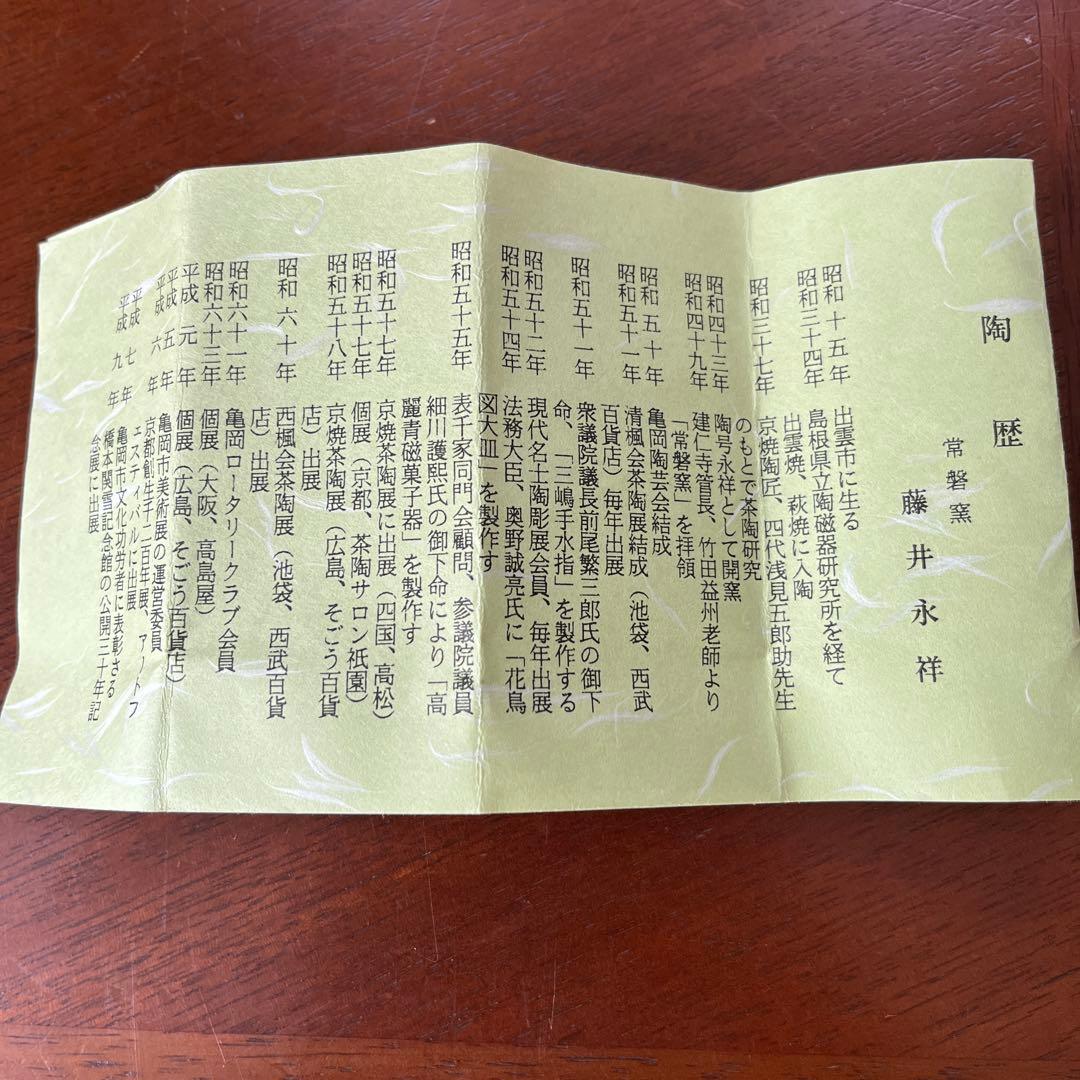 陶歴
常磐窯
藤井永祥
昭和十五年 出雲市に生る
昭和三十四年 島根県立陶磁器研究所を経て
出雲焼、萩焼に入陶
昭和三十七年 京焼陶匠、四代浅見五郎助先生
のもとで茶陶研究
昭和四十三年 陶号永祥として開窯
昭和四十九年 建仁寺管長、竹田益州老師より
「常磐窯」を拝領
昭和五十年 亀岡陶芸会結成
昭和五十一年 清楓会茶陶展結成（池袋、西武
百貨店）毎年出展
昭和五十一年 衆議院議長前尾繁三郎氏の御下
命、「三嶋手水指」を製作する
昭和五十二年 現代名士陶彫展会員、毎年出展
昭和五十四年 法務大臣、奥野誠亮氏に「花鳥
図大皿」を製作す
昭和五十五年 表千家同門会顧問、参議院議員
細川護熙氏の御下命により「高
麗青磁菓子器」を製作す
昭和五十七年 京焼茶陶展に出展（四国、高松）
昭和五十七年 個展（京都、茶陶サロン祇園）
昭和五十八年 京焼茶陶展（広島、そごう百貨
店）出展
昭和六十年 西楓会茶陶展（池袋、西武百貨
店）出展
昭和六十一年 亀岡ロータリークラブ会員
昭和六十三年 個展（大阪、高島屋）
平成元年 個展（広島、そごう百貨店）
平成五年 亀岡市美術展の運営委員
平成六年 京都創生千二百年展、アートフ
ェスティバルに出展
平成七年 亀岡市文化功労者に表彰さる
平成九年 橋本関雪記念館の公開三十年記
念展に出展